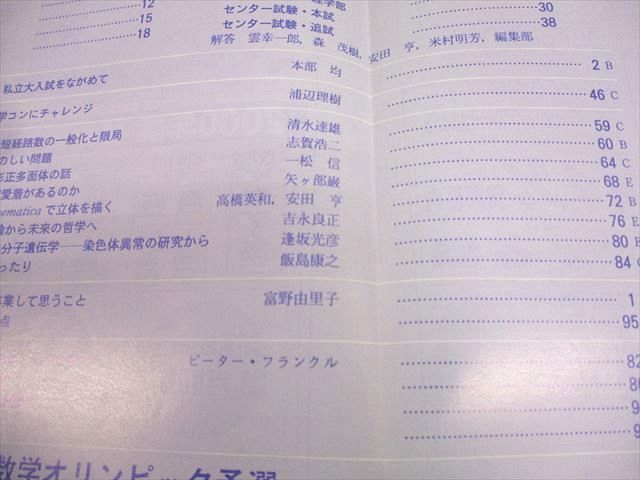 12
15
18
理学部
センター試験・本試 30
センター試験・追試 38
解答 雲幸一郎, 森 茂樹, 安田 亨, 米村明芳, 編集部
私立大入試をながめて 本部 均 2 B
学コンにチャレンジ 浦辺理樹 46 C
短経路数の一般化と限局 清水達雄 59 C
のしい問題 志賀浩二 60 B
正多面体の話 一松 信 64 C
愛着があるのか 矢ヶ部巌 68 E
ematica で立体を描く 高橋英和, 安田 亨 72 B
から未来の哲学へ 吉永良正 76 E
分子遺伝学――染色体異常の研究から 逢坂光彦 80 E
ったり 飯島康之 84 C
業して思うこと 富野由里子 1
点 95
ピーター・フランクル 82
数学オリンピック予選